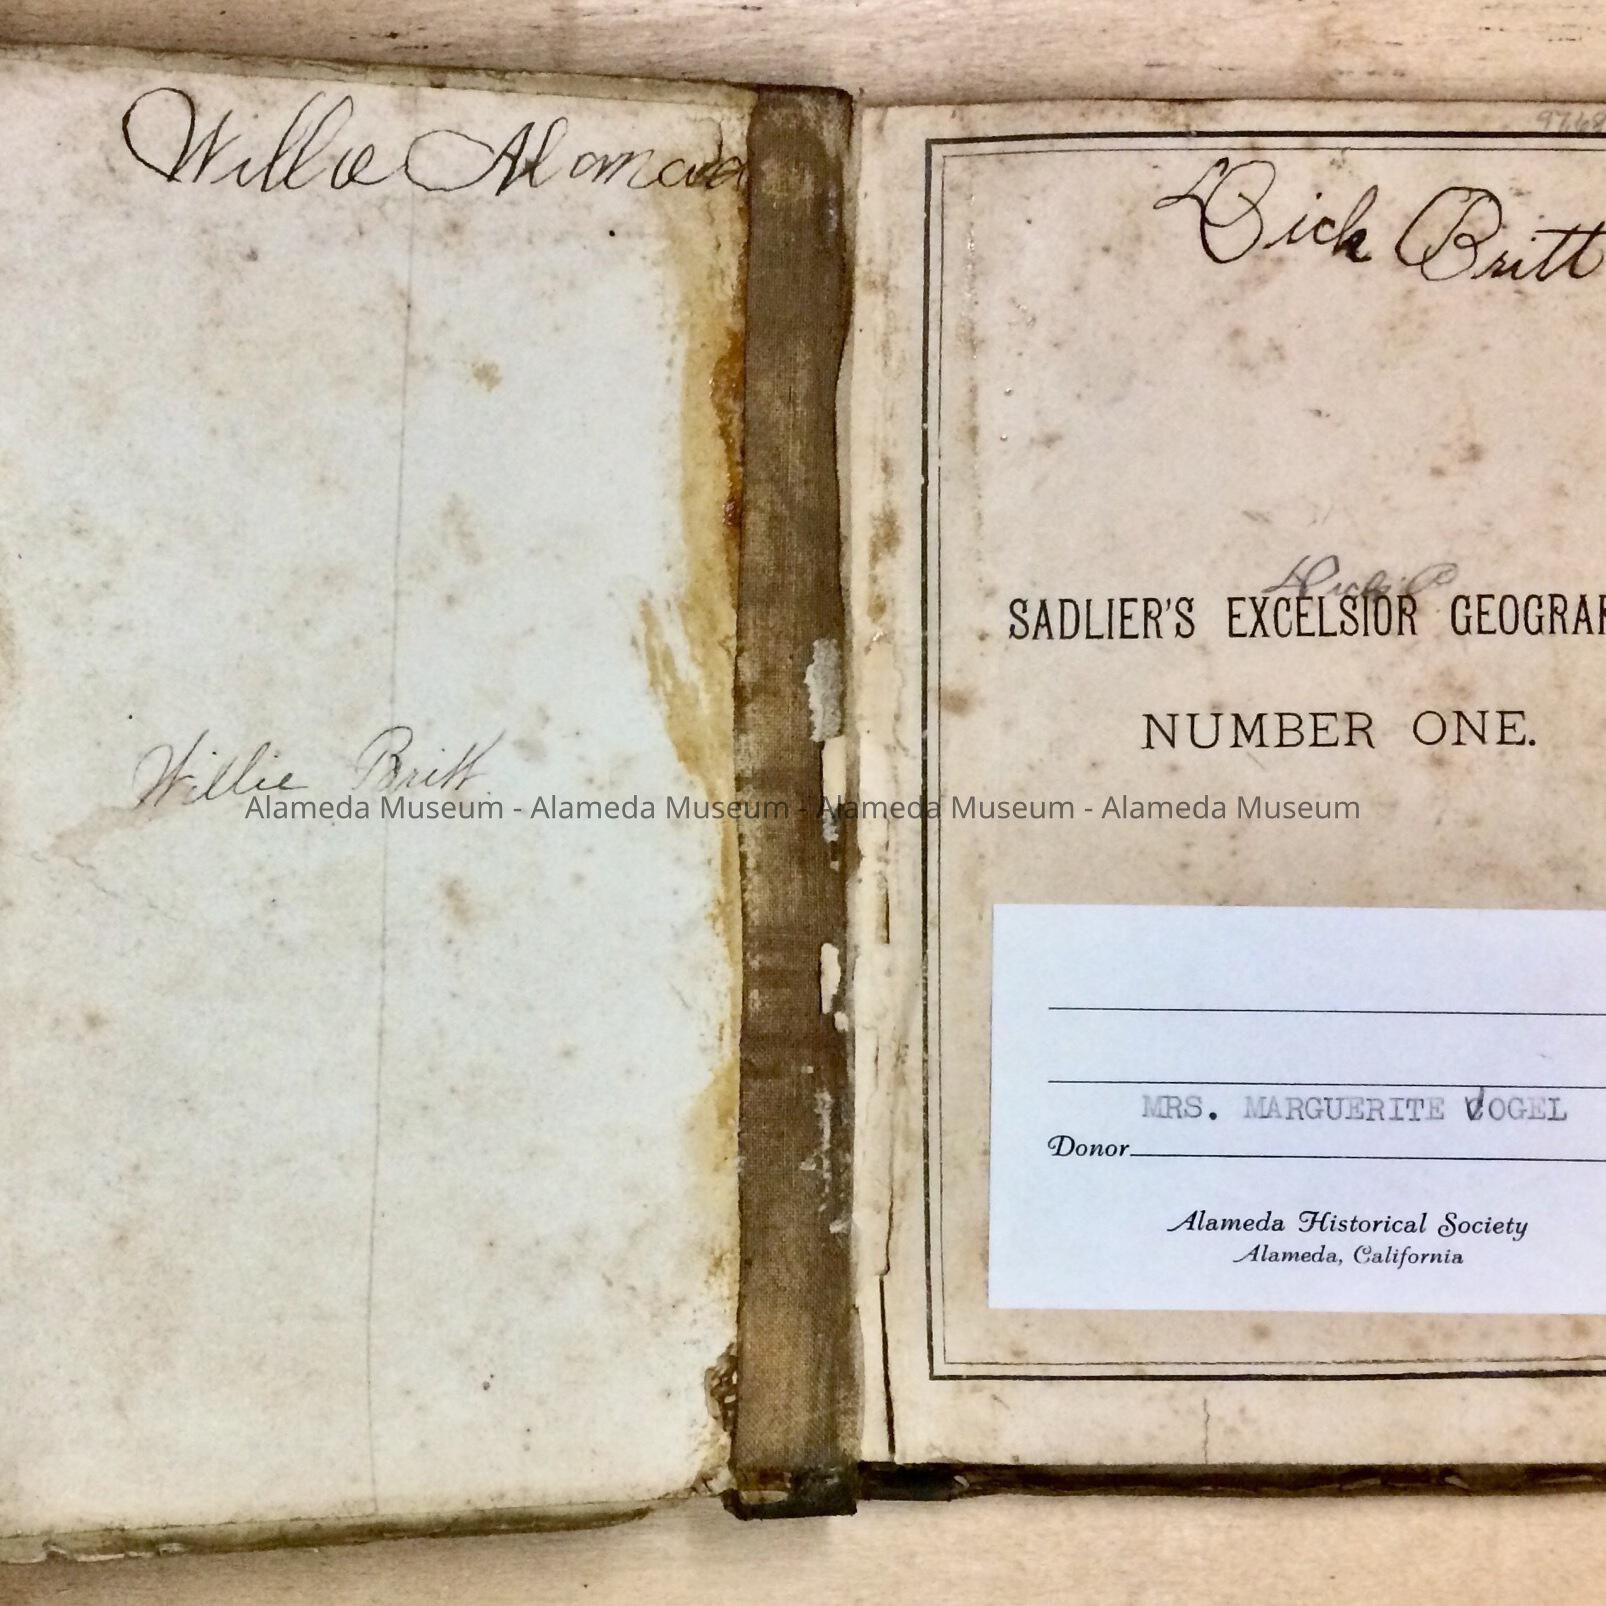 Willie Alameda
Willie Britt
Alameda Museum - Alameda Museum - Alameda Museum - Alameda Museum
Dick Britt
SADLIER'S EXCELSIOR GEOGRAP
NUMBER ONE.
MRS. MARGUERITE VOGEL
Donor
Alameda Historical Society
Alameda, California